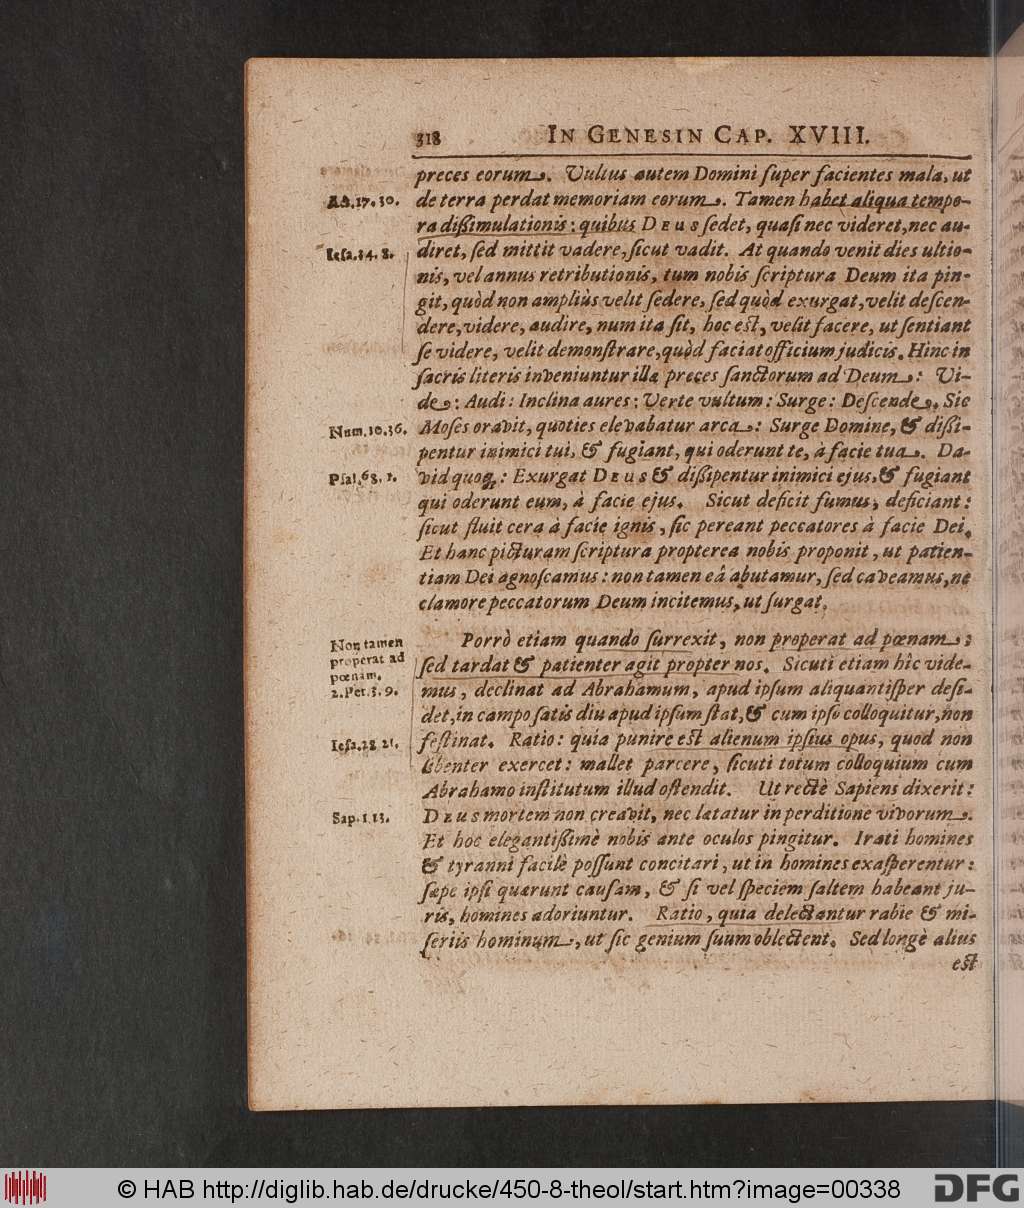 318 IN GENESIN CAP. XVIII.
preces eorum. Vultus autem Domini ſuper facientes mala, ut
Act. 17. 30. de terra perdat memoriam eorum. Tamen habet aliqua tempo-
ra dißimulationis: quibus DEUS ſedet, quaſi nec videret, nec au-
Ieſa. 14. 8. diret, ſed mittit vadere, ſicut vadit. At quando venit dies ultio-
nis, vel annus retributionis, tum nobis ſcriptura Deum ita pin-
git, quòd non ampliùs velit ſedere, ſed quòd exurgat, velit deſcen-
dere, videre, audire, num ita ſit, hoc eſt, velit facere, ut ſentiant
ſe videre, velit demonſtrare, quòd faciat officium judicis. Hinc in
ſacris literis inveniuntur illæ preces ſanctorum ad Deum: Vi-
de: Audi: Inclina aures: Verte vultum: Surge: Deſcende. Sic
Num. 10. 36. Moſes oravit, quoties elevabatur arca: Surge Domine, & dißi-
pentur inimici tui, & fugiant, qui oderunt te, à facie tua. Da-
Pſal. 68. 1. vid quoq;: Exurgat DEUS & dißipentur inimici ejus, & fugiant
qui oderunt eum, à facie ejus. Sicut deficit fumus, deficiant:
ſicut fluit cera à facie ignis, ſic pereant peccatores à facie Dei.
Et hanc picturam ſcriptura propterea nobis proponit, ut patien-
tiam Dei agnoſcamus: non tamen eâ abutamur, ſed caveamus, ne
clamore peccatorum Deum incitemus, ut ſurgat.
Non tamen
properat ad
pœnam.
2. Pet. 3. 9.
Porrò etiam quando ſurrexit, non properat ad pœnam:
ſed tardat & patienter agit propter nos. Sicuti etiam hîc vide-
mus, declinat ad Abrahamum, apud ipſum aliquantiſper deſi-
det, in campo ſatis diu apud ipſum ſtat, & cum ipſo colloquitur, non
Ieſa. 28. 21. feſtinat. Ratio: quia punire eſt alienum ipſius opus, quod non
libenter exercet: mallet parcere, ſicuti totum colloquium cum
Abrahamo inſtitutum illud oſtendit. Ut rectè Sapiens dixerit:
Sap. 1. 13. DEUS mortem non creavit, nec lætatur in perditione vivorum.
Et hoc elegantißimè nobis ante oculos pingitur. Irati homines
& tyranni facilè poſſunt concitari, ut in homines exaſperentur:
ſæpe ipſi quærunt cauſam, & ſi vel ſpeciem ſaltem habeant ju-
ris, homines adoriuntur. Ratio, quia delectantur rabie & mi-
ſeriis hominum, ut ſic genium ſuum oblectent. Sed longè alius
eſt
© HAB http://diglib.hab.de/drucke/450-8-theol/start.htm?image=00338
DFG